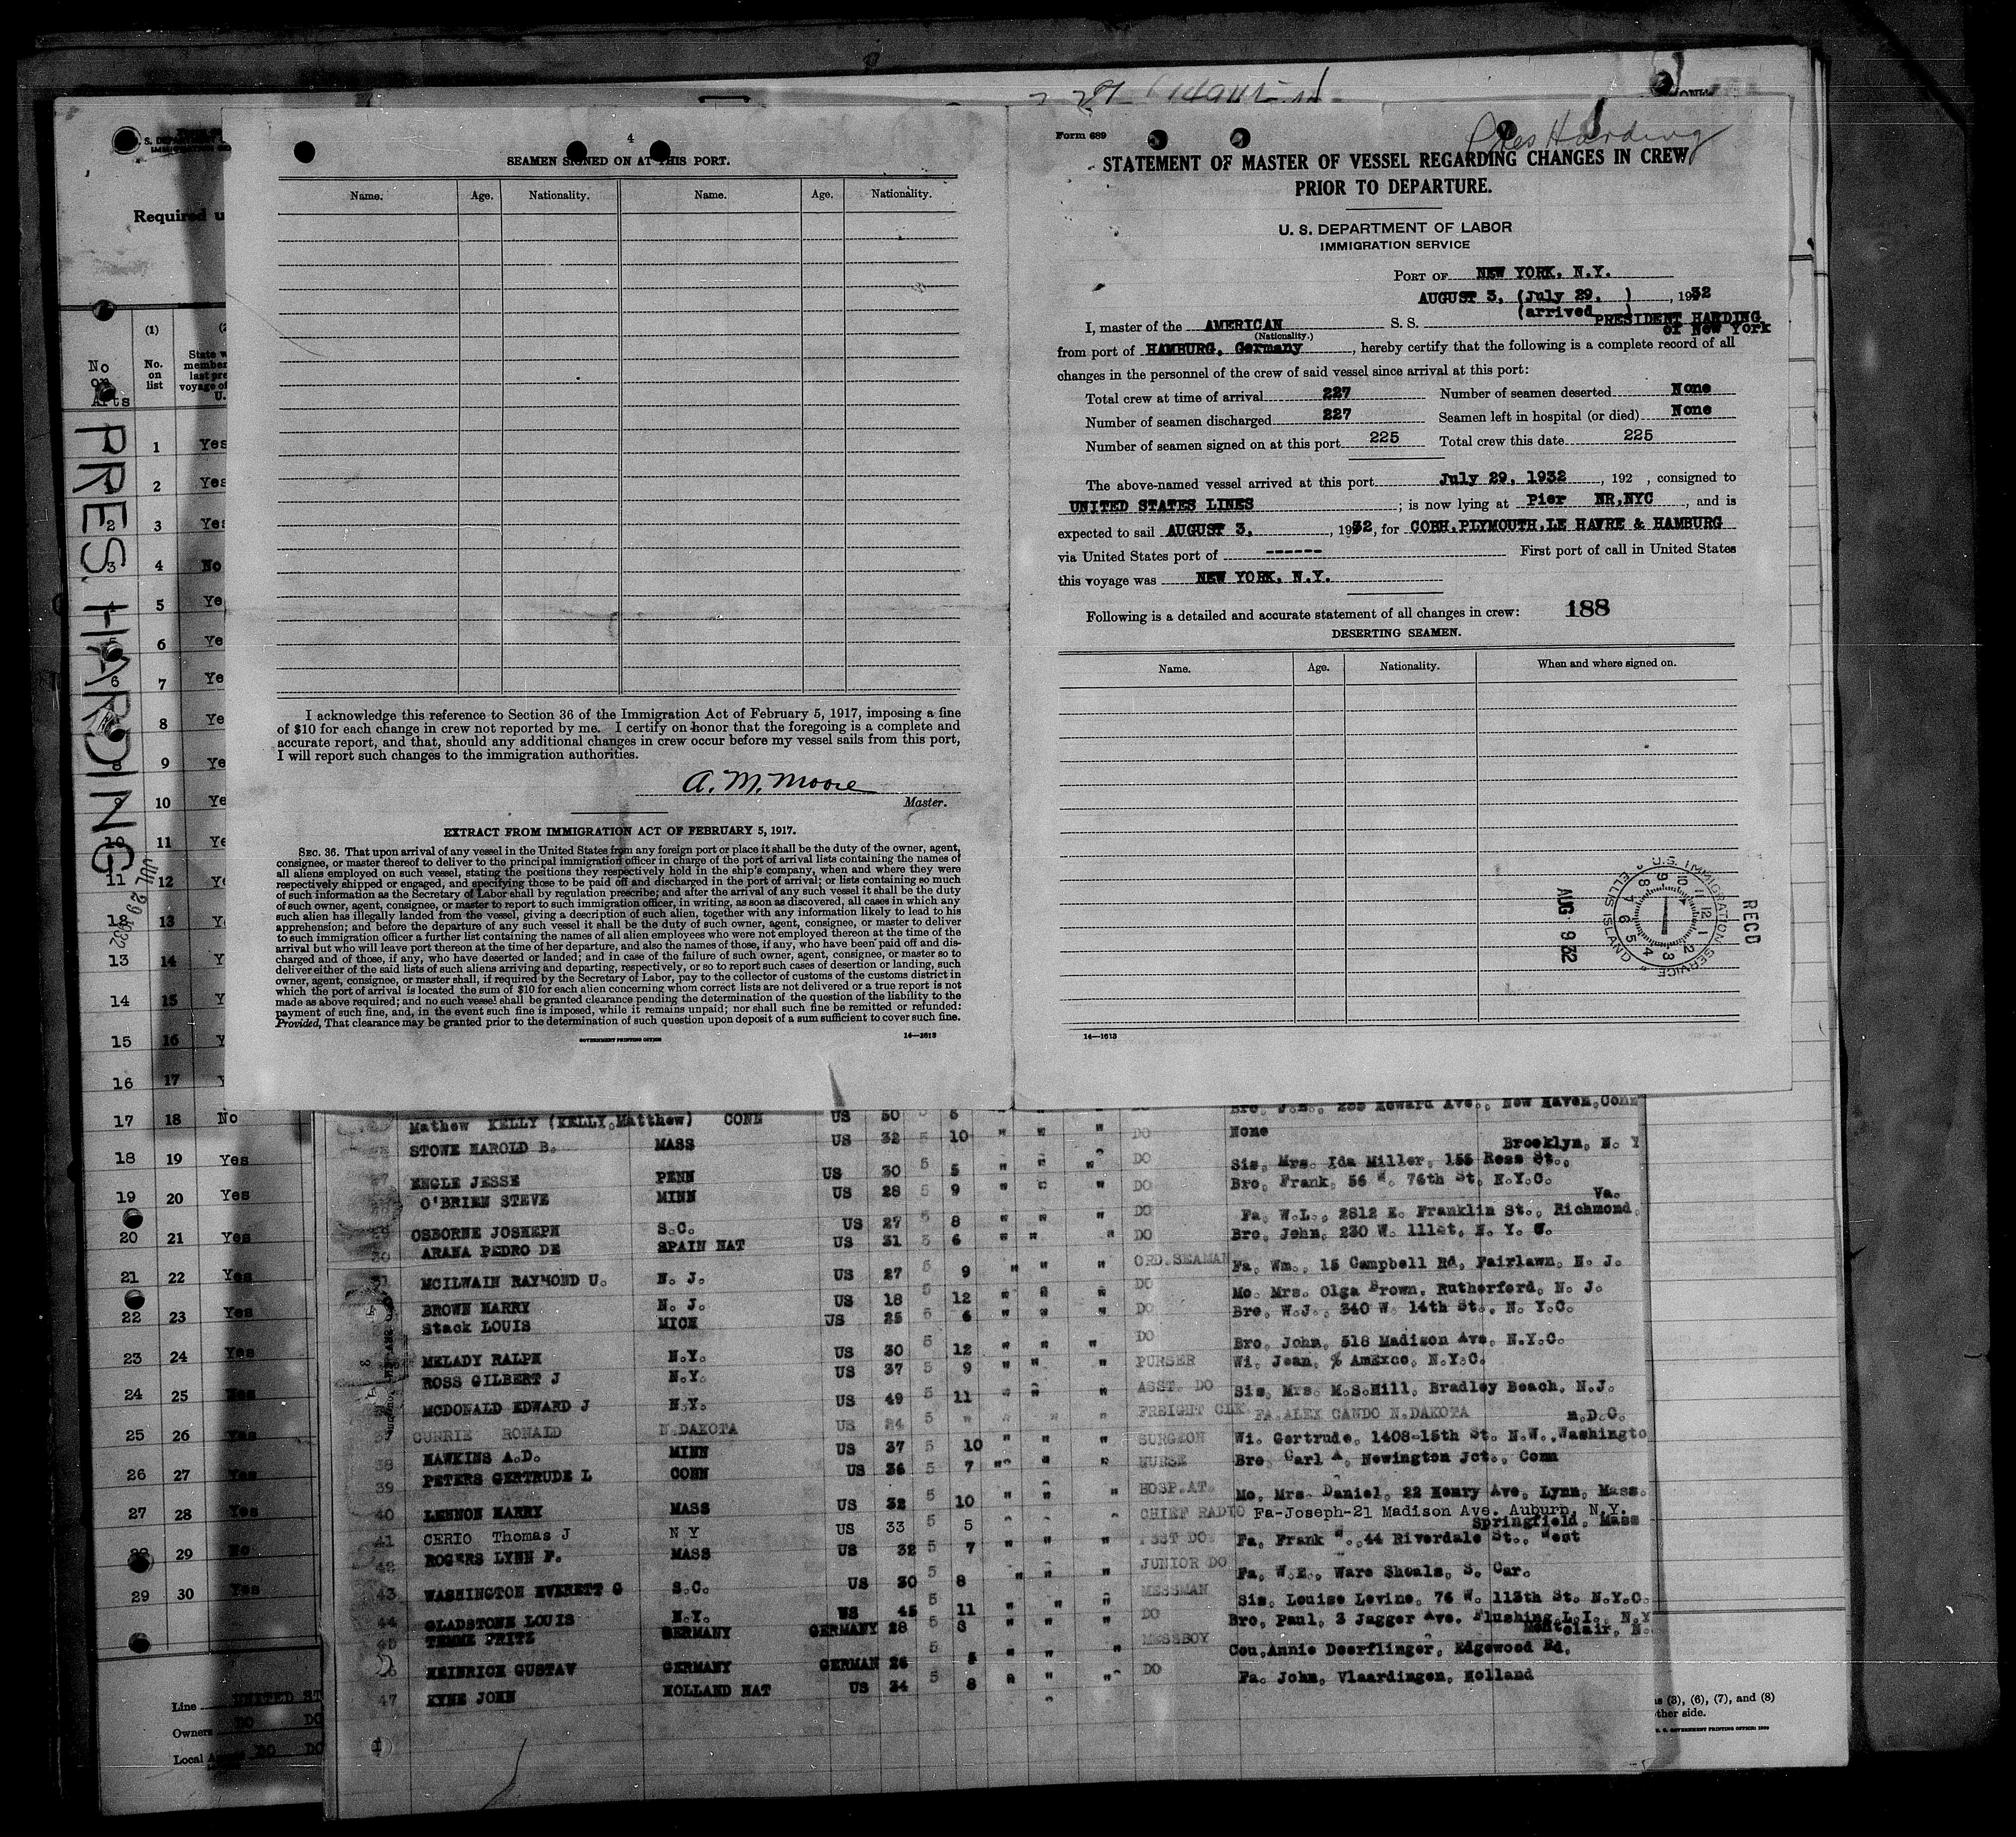 Pres Harding
4
SEAMEN SIGNED ON AT THIS PORT.
Name. Age. Nationality. Name. Age. Nationality.
I acknowledge this reference to Section 36 of the Immigration Act of February 5, 1917, imposing a fine
of $10 for each change in crew not reported by me. I certify on honor that the foregoing is a complete and
accurate report, and that, should any additional changes in crew occur before my vessel sails from this port,
I will report such changes to the immigration authorities.
A. M. Moore
Master.
EXTRACT FROM IMMIGRATION ACT OF FEBRUARY 5, 1917.
SEC. 36. That upon arrival of any vessel in the United States from any foreign port or place it shall be the duty of the owner, agent,
consignee, or master thereof to deliver to the principal immigration officer in charge of the port of arrival lists containing the names of
all aliens employed on such vessel, stating the positions they respectively hold in the ship's company, when and where they were
respectively shipped or engaged, and specifying those to be paid off and discharged in the port of arrival; or lists containing so much
of such information as the Secretary of Labor shall by regulation prescribe; and after the arrival of any such vessel it shall be the duty
of such owner, agent, consignee, or master to report to such immigration officer, in writing, as soon as discovered, all cases in which any
such alien has illegally landed from the vessel, giving a description of such alien, together with any information likely to lead to his
apprehension; and before the departure of any such vessel it shall be the duty of such owner, agent, consignee, or master to deliver
to such immigration officer a further list containing the names of all alien employees who were not employed thereon at the time of the
arrival but who will leave port thereon at the time of her departure, and also the names of those, if any, who have been paid off and dis-
charged and of those, if any, who have deserted or landed; and in case of the failure of such owner, agent, consignee, or master so to
deliver either of the said lists of such aliens arriving and departing, respectively, or so to report such cases of desertion or landing, such
owner, agent, consignee, or master shall, if required by the Secretary of Labor, pay to the collector of customs of the customs district in
which the port of arrival is located the sum of $10 for each alien concerning whom correct lists are not delivered or a true report is not
made as above required; and no such vessel shall be granted clearance pending the determination of the question of the liability to the
payment of such fine, and, in the event such fine is imposed, while it remains unpaid; nor shall such fine be remitted or refunded:
Provided, That clearance may be granted prior to the determination of such question upon deposit of a sum sufficient to cover such fine.
GOVERNMENT PRINTING OFFICE 14—1613
Form 689
STATEMENT OF MASTER OF VESSEL REGARDING CHANGES IN CREW
PRIOR TO DEPARTURE.
U. S. DEPARTMENT OF LABOR
IMMIGRATION SERVICE
PORT OF NEW YORK, N.Y.
AUGUST 3, (July 29, ) , 1932
(arrived )
I, master of the AMERICAN S. S. PRESIDENT HARDING
(Nationality.) of New York
from port of HAMBURG, Germany, hereby certify that the following is a complete record of all
changes in the personnel of the crew of said vessel since arrival at this port:
Total crew at time of arrival 227 Number of seamen deserted None
Number of seamen discharged 227 Seamen left in hospital (or died) None
Number of seamen signed on at this port 225 Total crew this date 225
The above-named vessel arrived at this port July 29, 1932 , 192 , consigned to
UNITED STATES LINES ; is now lying at Pier NR,NYC , and is
expected to sail AUGUST 3, , 1932, for COBH,PLYMOUTH,LE HAVRE & HAMBURG
via United States port of ------ First port of call in United States
this voyage was NEW YORK, N.Y.
Following is a detailed and accurate statement of all changes in crew: 188
DESERTING SEAMEN.
Name. Age. Nationality. When and where signed on.
RECD
U.S. IMMIGRATION SERVICE ELLIS ISLAND
12 1 2 3 4 5 6 7 8 9 10 11
AUG 9 32
14—1613
Required u
(1)
No on Arts
No. on list
PRES. HARDING
JUL 29 1932
1 Yes
2 Yes
3 Yes
4 No
5 Ye
6 Ye
7 Ye
8 Ye
9 Ye
10 Ye
11 Ye
11 12 Ye
12 13 Y
13 14 Y
14 15 Y
15 16 Y
16 17 Y
17 18 No
18 19 Yes
19 20 Yes
20 21 Yes
21 22 Yes
22 23 Yes
23 24 Yes
24 25 Yes
25 26 Yes
26 27 Yes
27 28 Yes
28 29 No
29 30 Yes
Bro, J.E., 255 Howard Ave., New Haven,Conn
Mathew KELLY (KELLY,Matthew) CONN US 50 5 6 " " " DO None
STONE HAROLD B. MASS US 32 5 10 " " " DO Brooklyn, N. Y
Sis, Mrs. Ida Miller, 155 Ross St.,
ENGLE JESSE PENN US 30 5 5 " " " DO Bro, Frank, 56 W. 76th St, N.Y.C.
O'BRIEN STEVE MINN US 28 5 9 " " " DO Va.
Fa, W.L., 2812 E. Franklin St., Richmond,
OSBORNE JOSHEPH S.C. US 27 5 8 " " " DO Bro, John, 230 W. 111st, N. Y. C.
ARANA PEDRO DE SPAIN NAT US 31 5 6 " " " DO
31 MCILWAIN RAYMOND U. N. J. US 27 5 9 " " " ORD.SEAMAN Fa, Wm., 15 Campbell Rd, Fairlawn, N. J.
BROWN HARRY N. J. US 18 5 12 " " " DO Mo, Mrs. Olga Brown, Rutherford, N. J.
Stack LOUIS MICH US 25 5 6 " " " DO Bro, W.J., 340 W. 14th St., N. Y.C.
MELADY RALPH N.Y. US 30 5 12 " " " DO Bro, John, 518 Madison Ave, N.Y.C.
ROSS GILBERT J N.Y. US 37 5 9 " " " PURSER Wi, Jean, % AmExco, N.Y.C.
MCDONALD EDWARD J N.Y. US 49 5 11 " " " ASST. DO Sis, Mrs. M.S.Hill, Bradley Beach, N.J.
37 CURRIE RONALD N.DAKOTA US 24 5 " " " " FREIGHT CLK FA.ALEX CANDO N.DAKOTA
38 HAWKINS A.D. MINN US 37 5 10 " " " SURGEON Wi. Gertrude, 1408-15th St. N.W.,Washingto n.D.C.
39 PETERS GERTRUDE L CONN US 36 5 7 " " " NURSE Bro, Carl A, Newington Jct., Conn
40 LENNON HARRY MASS US 32 5 10 " " " HOSP.AT. Mo, Mrs. Daniel, 22 Henry Ave, Lynn, Mass.
41 CERIO Thomas J N Y US 33 5 5 " " " CHIEF RADIO Fa-Joseph-21 Madison Ave. Auburn, N.Y.
42 ROGERS LYNN F. MASS US 32 5 7 " " " DO Fa, Frank W.,44 Riverdale St., West Springfield, Mass
43 WASHINGTON EVERETT G S.C. US 30 5 8 " " " JUNIOR DO Fa, W.E., Ware Shoals, S. Car.
44 GLADSTONE LOUIS N.Y. US 45 5 11 " " " MESSMAN Sis, Louise Levine, 76 W. 113th St. N.Y.C.
45 TEMME FRITZ GERMANY GERMANY 28 5 8 " " " DO Bro, Paul, 3 Jagger Ave. Flushing,L.I., N.Y
HEINRICH GUSTAV GERMANY GERMAN 26 5 " " " MESSBOY Cou,Annie Deerflinger, Edgewood Rd, Montclair, N.
47 KYNE JOHN HOLLAND NAT US 34 5 8 " " " DO Fa, John, Vlaardingen, Holland
Line UNITED ST
Owners DO DO
Local A DO DO
s (3), (6), (7), and (8)
ther side.